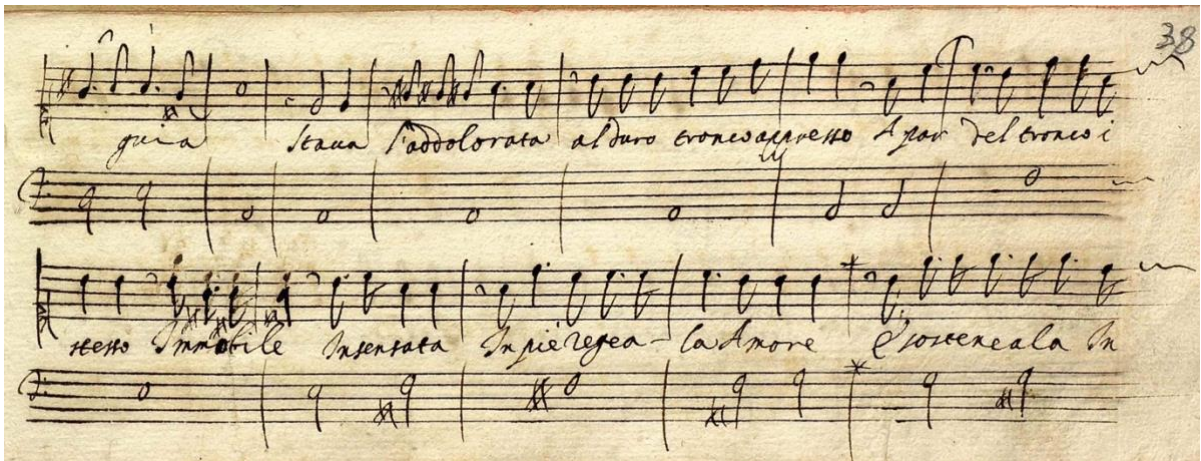 38
guia Staua l'addolorata al duro tronco appresso A par del tronco i
stesso Immobile Insensata In piè regea - la Amore E sosteneala In